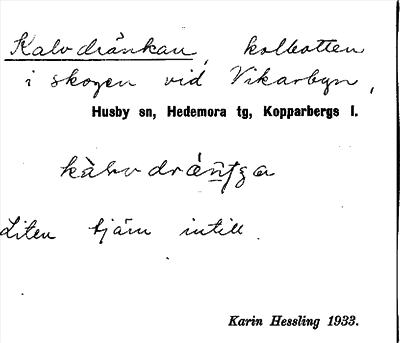 Kalvdränkan, kolbotten
i skogen vid Vikarbyn,
Husby sn, Hedemora tg, Kopparbergs l.
Liten tjärn intill.
Karin Hessling 1933.